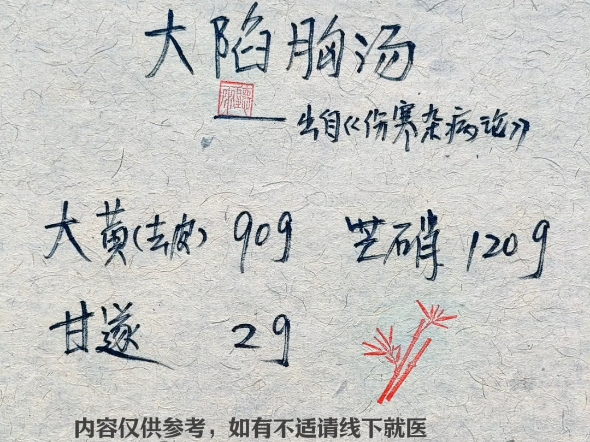 大陷胸汤
——出自《伤寒杂病论》
大黄(去皮) 90g 芒硝 120g
甘遂 2g
内容仅供参考，如有不适请线下就医